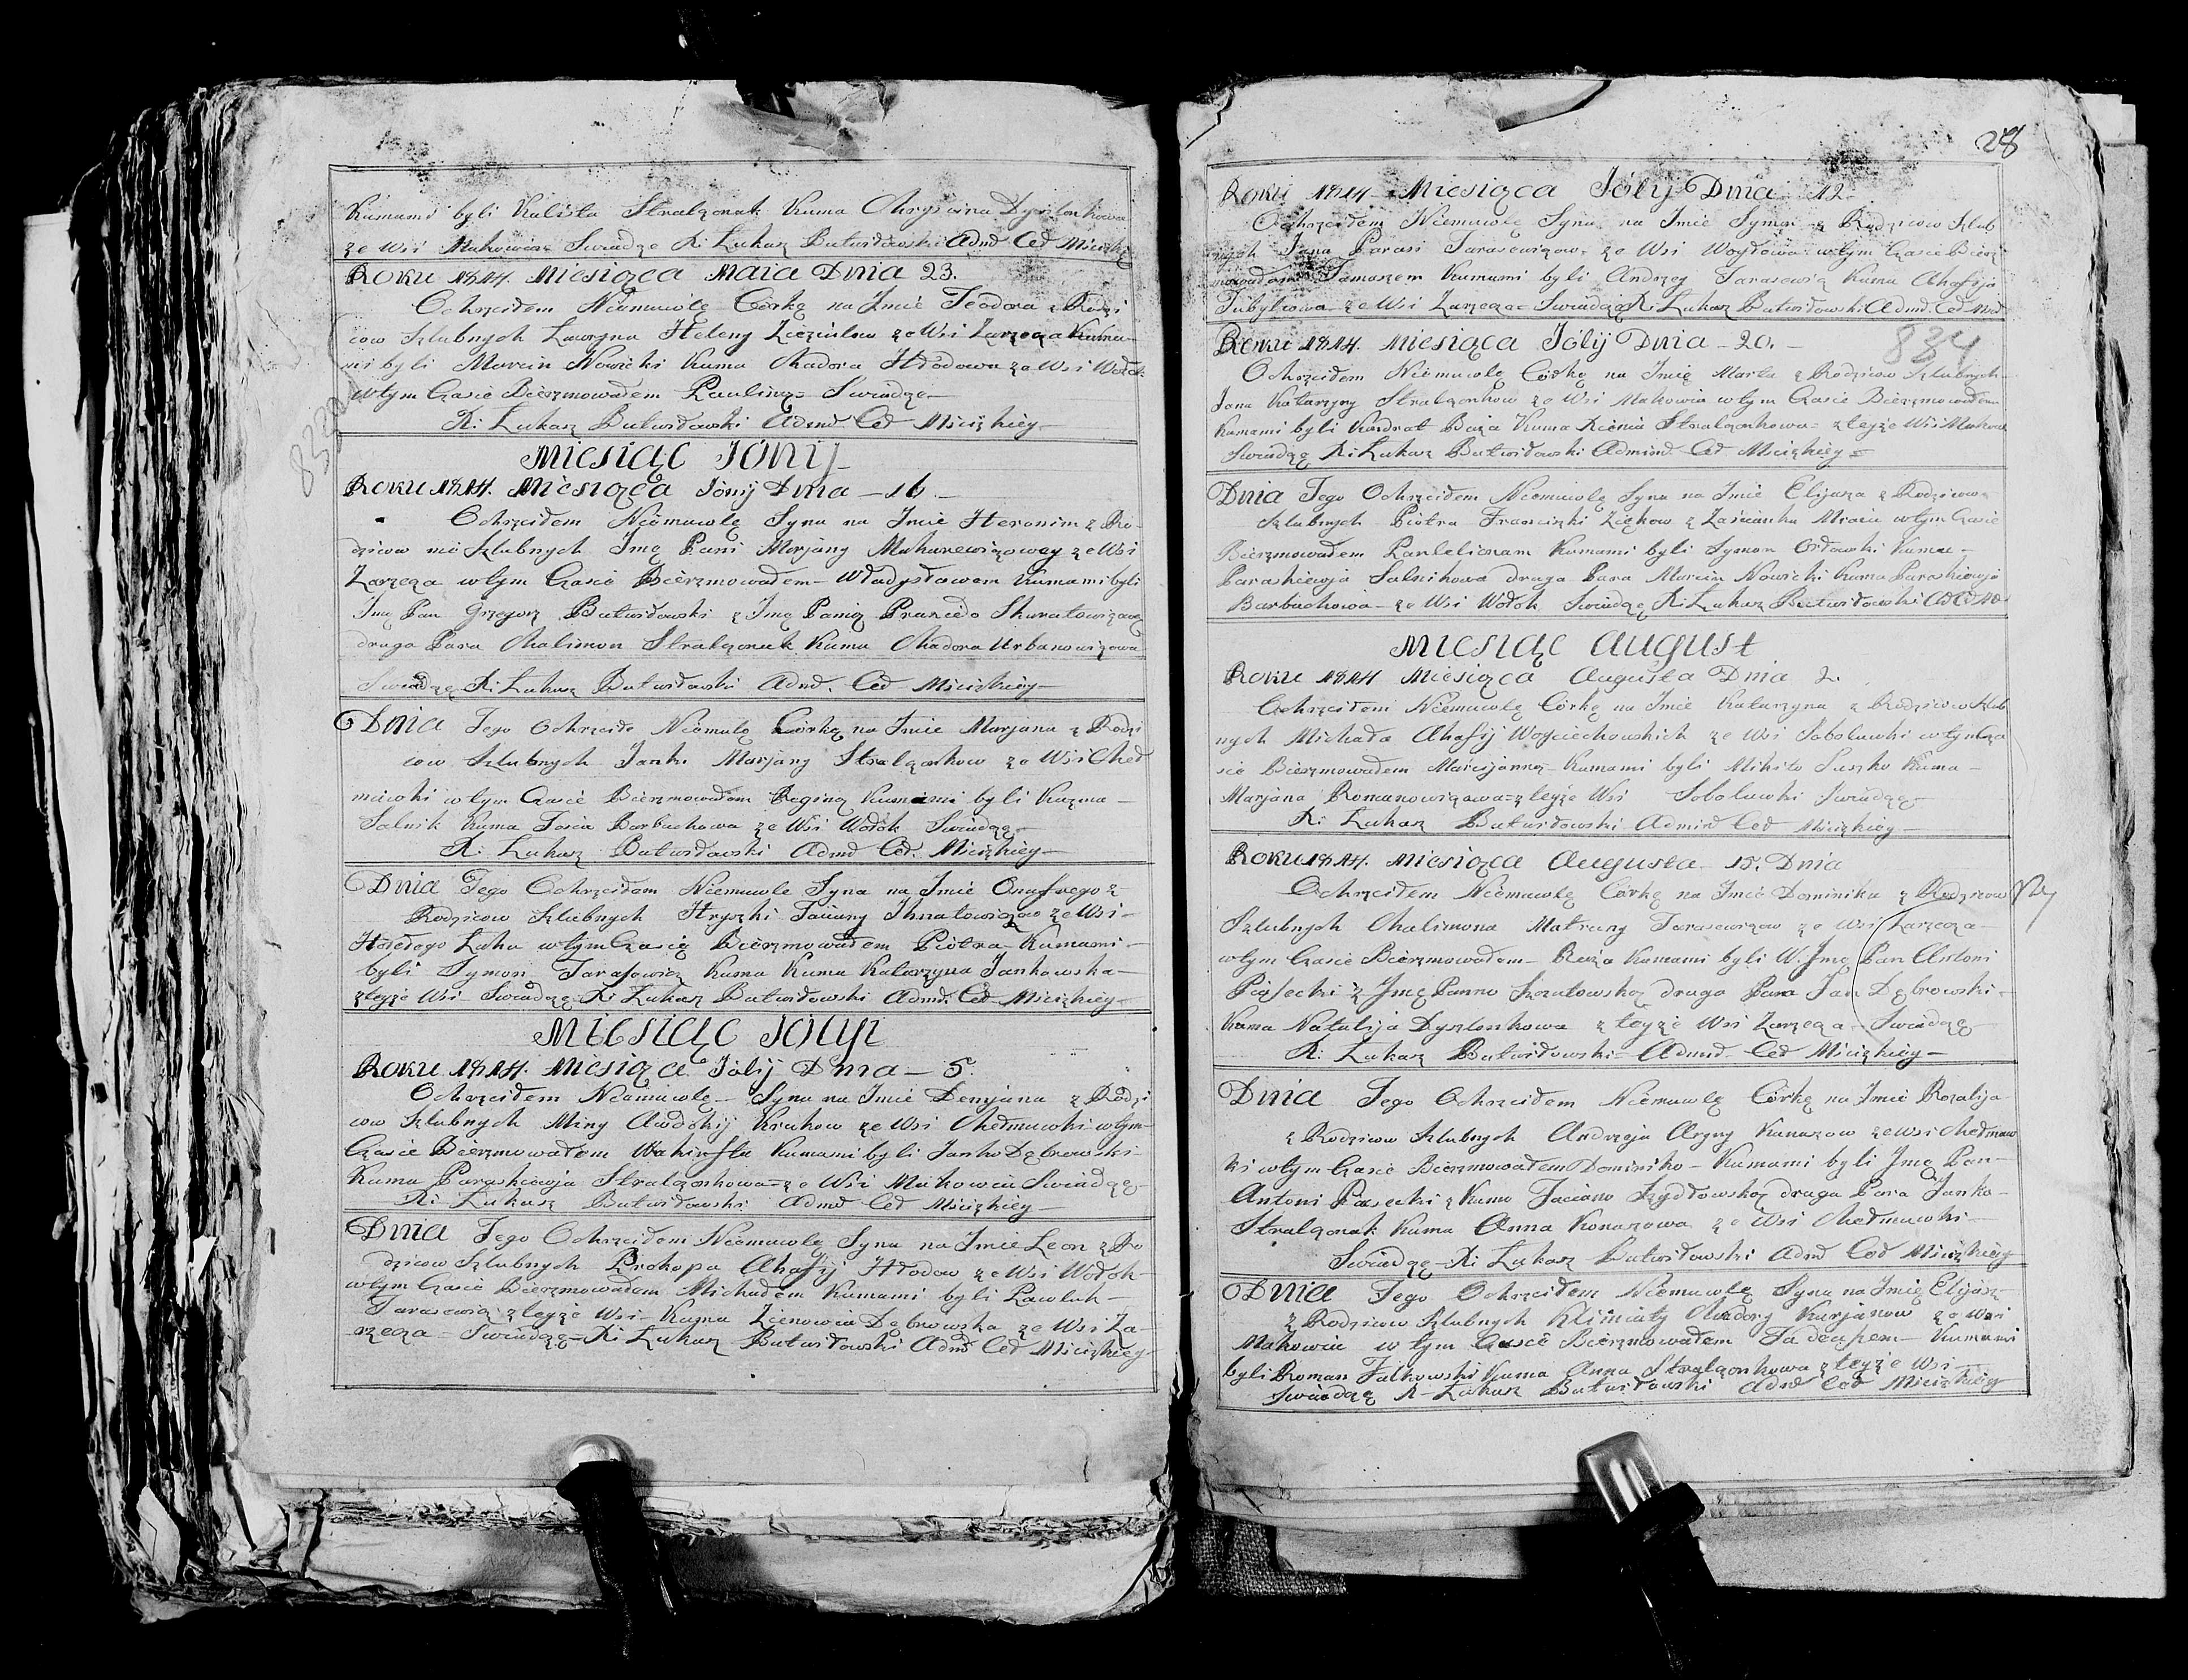 Kumami byli Kalista Stralczonak Kuma Chrystina Dyszlonkowa
ze Wsi Makowicz Swiadczę Xi Łukasz Butwiłowski Admł Ceł Mścizkiey
Roku 1814. Miesiąca Maia Dnia 23.
Ochrzciłem Niemuwlę Córkę na Jmie Teodora z Rodzi
cow Szlubnych Ławryna Heleny ze Wsi Zarzecza Kuma-
mi byli Marcin Nowicki Kuma Chadora Hłodowa ze Wsi Wołok
wtym Czasie Bierzmowałem Pauliną Swiadczę
Xi Łukasz Butwiłowski Admł Ceł Mścizkiey
Miesiąc Jónij
Roku 1814. Miesiąca Jónij Dnia 16
Ochrzciłem Niemuwlę Syna na Jmie Heronim z Ro-
dzicow nie Szlubnych Jmę Pani Marjany Makarewiczowey ze Wsi
Zarzecza wtym Czasie Bierzmowałem Władysławem Kumami byli
Jmę Pan Grzegorz Butwiłowski z Jmę Panią Praxedo Skuratowiczową
druga Para Chalimon Stralczonak Kuma Chadora Urbanowiczowa
Swiadczę Xi Łukasz Butwiłowski Admł. Ceł Mścizkiey
Dnia Tego Ochrzciłe Niemulę Córkę na Jmie Marjana z Rodzi
cow Szlubnych Janki Marjany Stralczonkow ze Wsi Cheł
miewki wtym Czasie Bierzmowałem Reginą Kumami byli Kuzma
Salnik Kuma Zosia Barbuchowa ze Wsi Wołok Swiadczę
Xi Łukasz Butwiłowski Admł Ceł. Mścizkiey
Dnia Tego Ochrzciłem Niemuwle Syna na Jmie Onafrego z
Rodzicow Szlubnych Hryszki Taciany Jhnatowiczow ze Wsi
Hołego Łuha wtym Czasie Bierzmowałem Piotra Kumami
byli Symon Tarasowicz Kuma Kuma Katarzyna Jankowska
zteyże Wsi Swiadczę Xi Łukasz Butwiłowski Admł. Ceł Mścizkiey
Miesiąc Jólyi
Roku 1814. Miesiąca Jólij Dnia 5.
Ochrzciłem Niemuwlę Syna na Jmie Demjana z Rodzi
cow Szlubnych Miny Awdokij Krukow ze Wsi Chełmuwki wtym
Czasie Bierzmowałem Kumami byli Janko Dąbrowski
Kuma Paraskiewja Stralczonkowa ze Wsi Makowia Swiadczę
Xi Łukasz Butwiłowski Admł Ceł Mścizkiey
Dnia Tego Ochrzciłem Niemuwlę Syna na Jmie Leon z Ro
dzicow Szlubnych Prokopa Ahafij Hłodow ze Wsi Wołok
wtym Czasie Bierzmowałem Michałem Kumami byli Pawluk
Tarasewicz zteyże Wsi Kuma Zienowia Dąbrowska ze Wsi Za-
rzecza Swiadczę Xi Łukasz Butwiłowski Admł Ceł Mścizkiey
28
Roku 1814 Miesiąca Jólij Dnia 12.
Ochrzciłem Niemuwlę Syna na Jmie Symon z Rodzicow Szlub
nych Jana Parasi Tarasewiczow ze Wsi Woytowa wtym Czasie Bierz
mowałem Tomaszem Kumami byli Andrzey Tarasewicz Kuma Ahafija
ze Wsi Zarzecza Swiadczę Xi Łukasz Butwiłowski Admł. Ceł Mść
Roku 1814. Miesiąca Jólij Dnia 20.
834
Ochrzciłem Niemuwlę Córkę na Jmię Marta z Rodzicow Szlubnych
Jana Katarzyny Stralczonkow ze Wsi Makowia wtym Czasie Bierzmowałem
Kumami byli Kondrat Kuma Xienia Stralczonkowa zteyże Wsi Makow
Swiadczę Xi Łukasz Butwiłowski Adminł Ceł Mścizkiey
Dnia Tego Ochrzciłem Niemuwlę Syna na Jmie Elijasza z Rodzicow
Szlubnych Piotra Franciszki Ziękow z Zaścianku wtym Czasie
Bierzmowałem Pantelionam Kumami byli Symon Orłowski Kuma
Paraskiewja Salnikowa druga Para Marcin Nowicki Kuma Paraskiewja
Barbuchowa ze Wsi Wołok Swiadczę Xi Łukasz Butwiłowski
Miesiąc August
Roku 1814 Miesiąca Augusta Dnia 2.
Ochrzciłem Niemuwlę Córkę na Jmie Katarzyna z Rodzicow Szlub
nych Michała Ahafij Woyciechowskich ze Wsi Sobolewki wtym Cza
sie Bierzmowałem Marcijanną Kumami byli Mikito Suszko Kuma
Marjana Romanowiczowa zteyże Wsi Sobolewki Swiadczę
Xi Łukasz Butwiłowski Adminł Ceł Mścizkiey
Roku 1814. Miesiąca Augusta 15. Dnia
Ochrzciłem Niemuwlę Córkę na Jmie Dominika z Rodzicow
Szlubnych Chalimona Matruny Tarasewiczow ze Wsi Zarzecza
wtym Czasie Bierzmowałem Rużą Kumami byli W. Jmę Pan Antoni
Piasecki z Jmę Panno Szrutowską druga Para Jan Dąbrowski
Kuma Natalija Dyszlonkowa zteyże Wsi Zarzecza Swiadczę
Xi Łukasz Butwiłowski Admnł Ceł Mścizkiey
Dnia Tego Ochrzciłem Niemuwlę Córkę na Jmie Rozalija
z Rodzicow Szlubnych Andrzeja Aryny Kunaszow ze Wsi Chełmuw
ki wtym Czasie Bierzmowałem Dominiko Kumami byli Jmę Pan
Antoni Pasecki z Kumo Taciano Szydłowską druga Para Janko
Stralczonak Kuma Anna Konaszowa ze Wsi Chełmuwki
Swiadczę Xi Łukasz Butwiłowski Admł Ceł Mścizkiey
Dnia Tego Ochrzciłem Niemuwlę Syna na Jmię Elijasz
z Rodzicow Szlubnych Klimiaty Chadory Kurjanow ze Wsi
Makowia wtym Czasie Bierzmowałem Tadeuszem Kumami
byli Roman Falkowski Kuma Anna Stralczonkowa zteyże Wsi
Swiadczę X Łukasz Butwiłowski Admł Ceł Mścizkiey